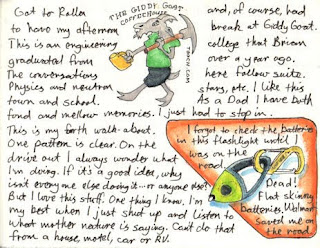 Got to Rolla
to have my afternoon
This is an engineering
graduated from
The conversations
Physics and neutron
town and school.
fond and mellow memories. I just had to stop in.
THE GIDDY GOAT
COFFEEHOUSE
TGGCH.COM
and, of course, had
break at Giddy Goat.
college that Brian
over a year ago.
here follow suite.
stars, etc. I like this
As a Dad I have both
This is my forth walk-about.
One pattern is clear. On the
drive out I always wonder what
I'm doing. If it's a good idea, why
isn't everyone else doing it-- or anyone else?
But I love this stuff. One thing I know, I'm
my best when I just shut up and listen to
what mother nature is saying. Can't do that
from a house, motel, car or RV.
I forgot to check the batteries
in this flashlight until I
was on the
road
Dead!
Flat skinny
batteries. Walmart
saved me on
the road